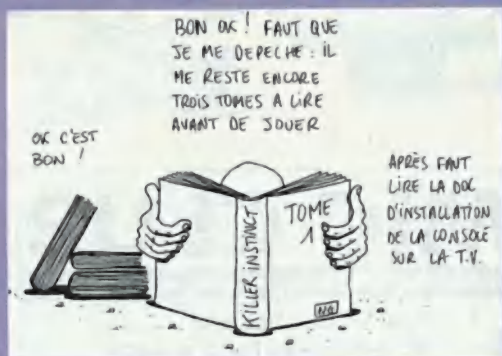 BON OK ! FAUT QUE
JE ME DEPECHE : IL
ME RESTE ENCORE
TROIS TOMES A LIRE
AVANT DE JOUER
OK C'EST
BON !
APRÈS FAUT
LIRE LA DOC
D'INSTALLATION
DE LA CONSOLE
SUR LA T.V.
KILLER INSTINCT
TOME
1